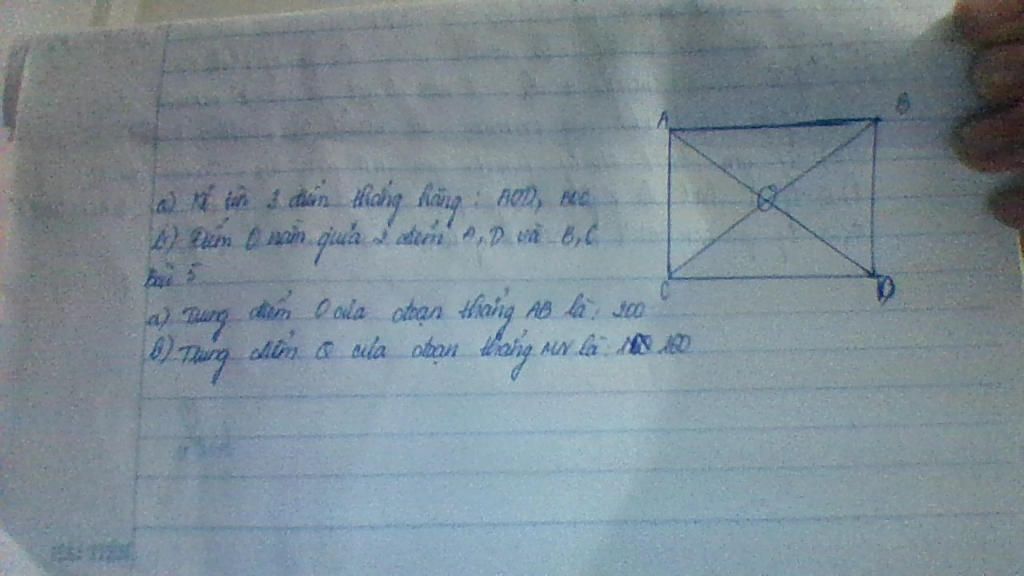 A
B
a) Kể tên 3 điểm thẳng hàng: AOD, BOC
O
b) Điểm O nằm giữa 2 điểm A, D và B, C
Bài 5
C
D
a) Trung điểm O của đoạn thẳng AB là: 200
b) Trung điểm Q của đoạn thẳng MN là:
HẢI TIẾN